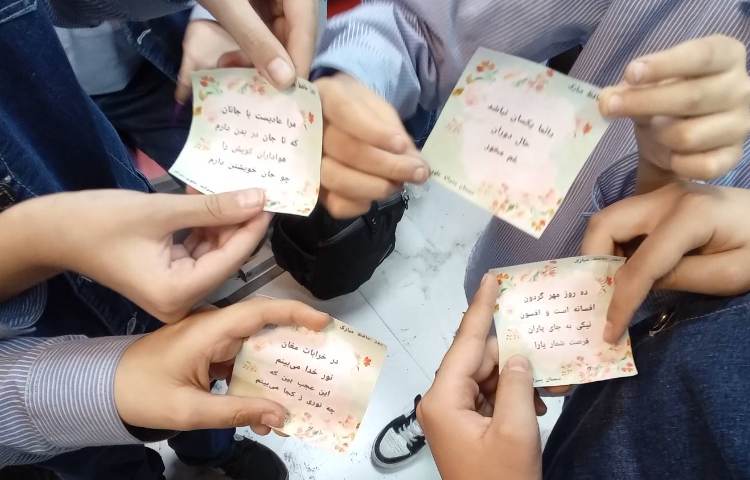 مرا عهدیست با جانان
که تا جان در بدن دارم
هواداران کویش را
چو جان خویشتن دارم
حافظ مبارک
دائما یکسان نباشد
حال دوران
غم مخور
حافظ مبارک
ده روز مهر گردون
افسانه است و افسون
نیکی به جای یاران
فرصت شمار یارا
حافظ مبارک
در خرابات مغان
نور خدا می‌بینم
این عجب بین که
چه نوری ز کجا می‌بینم